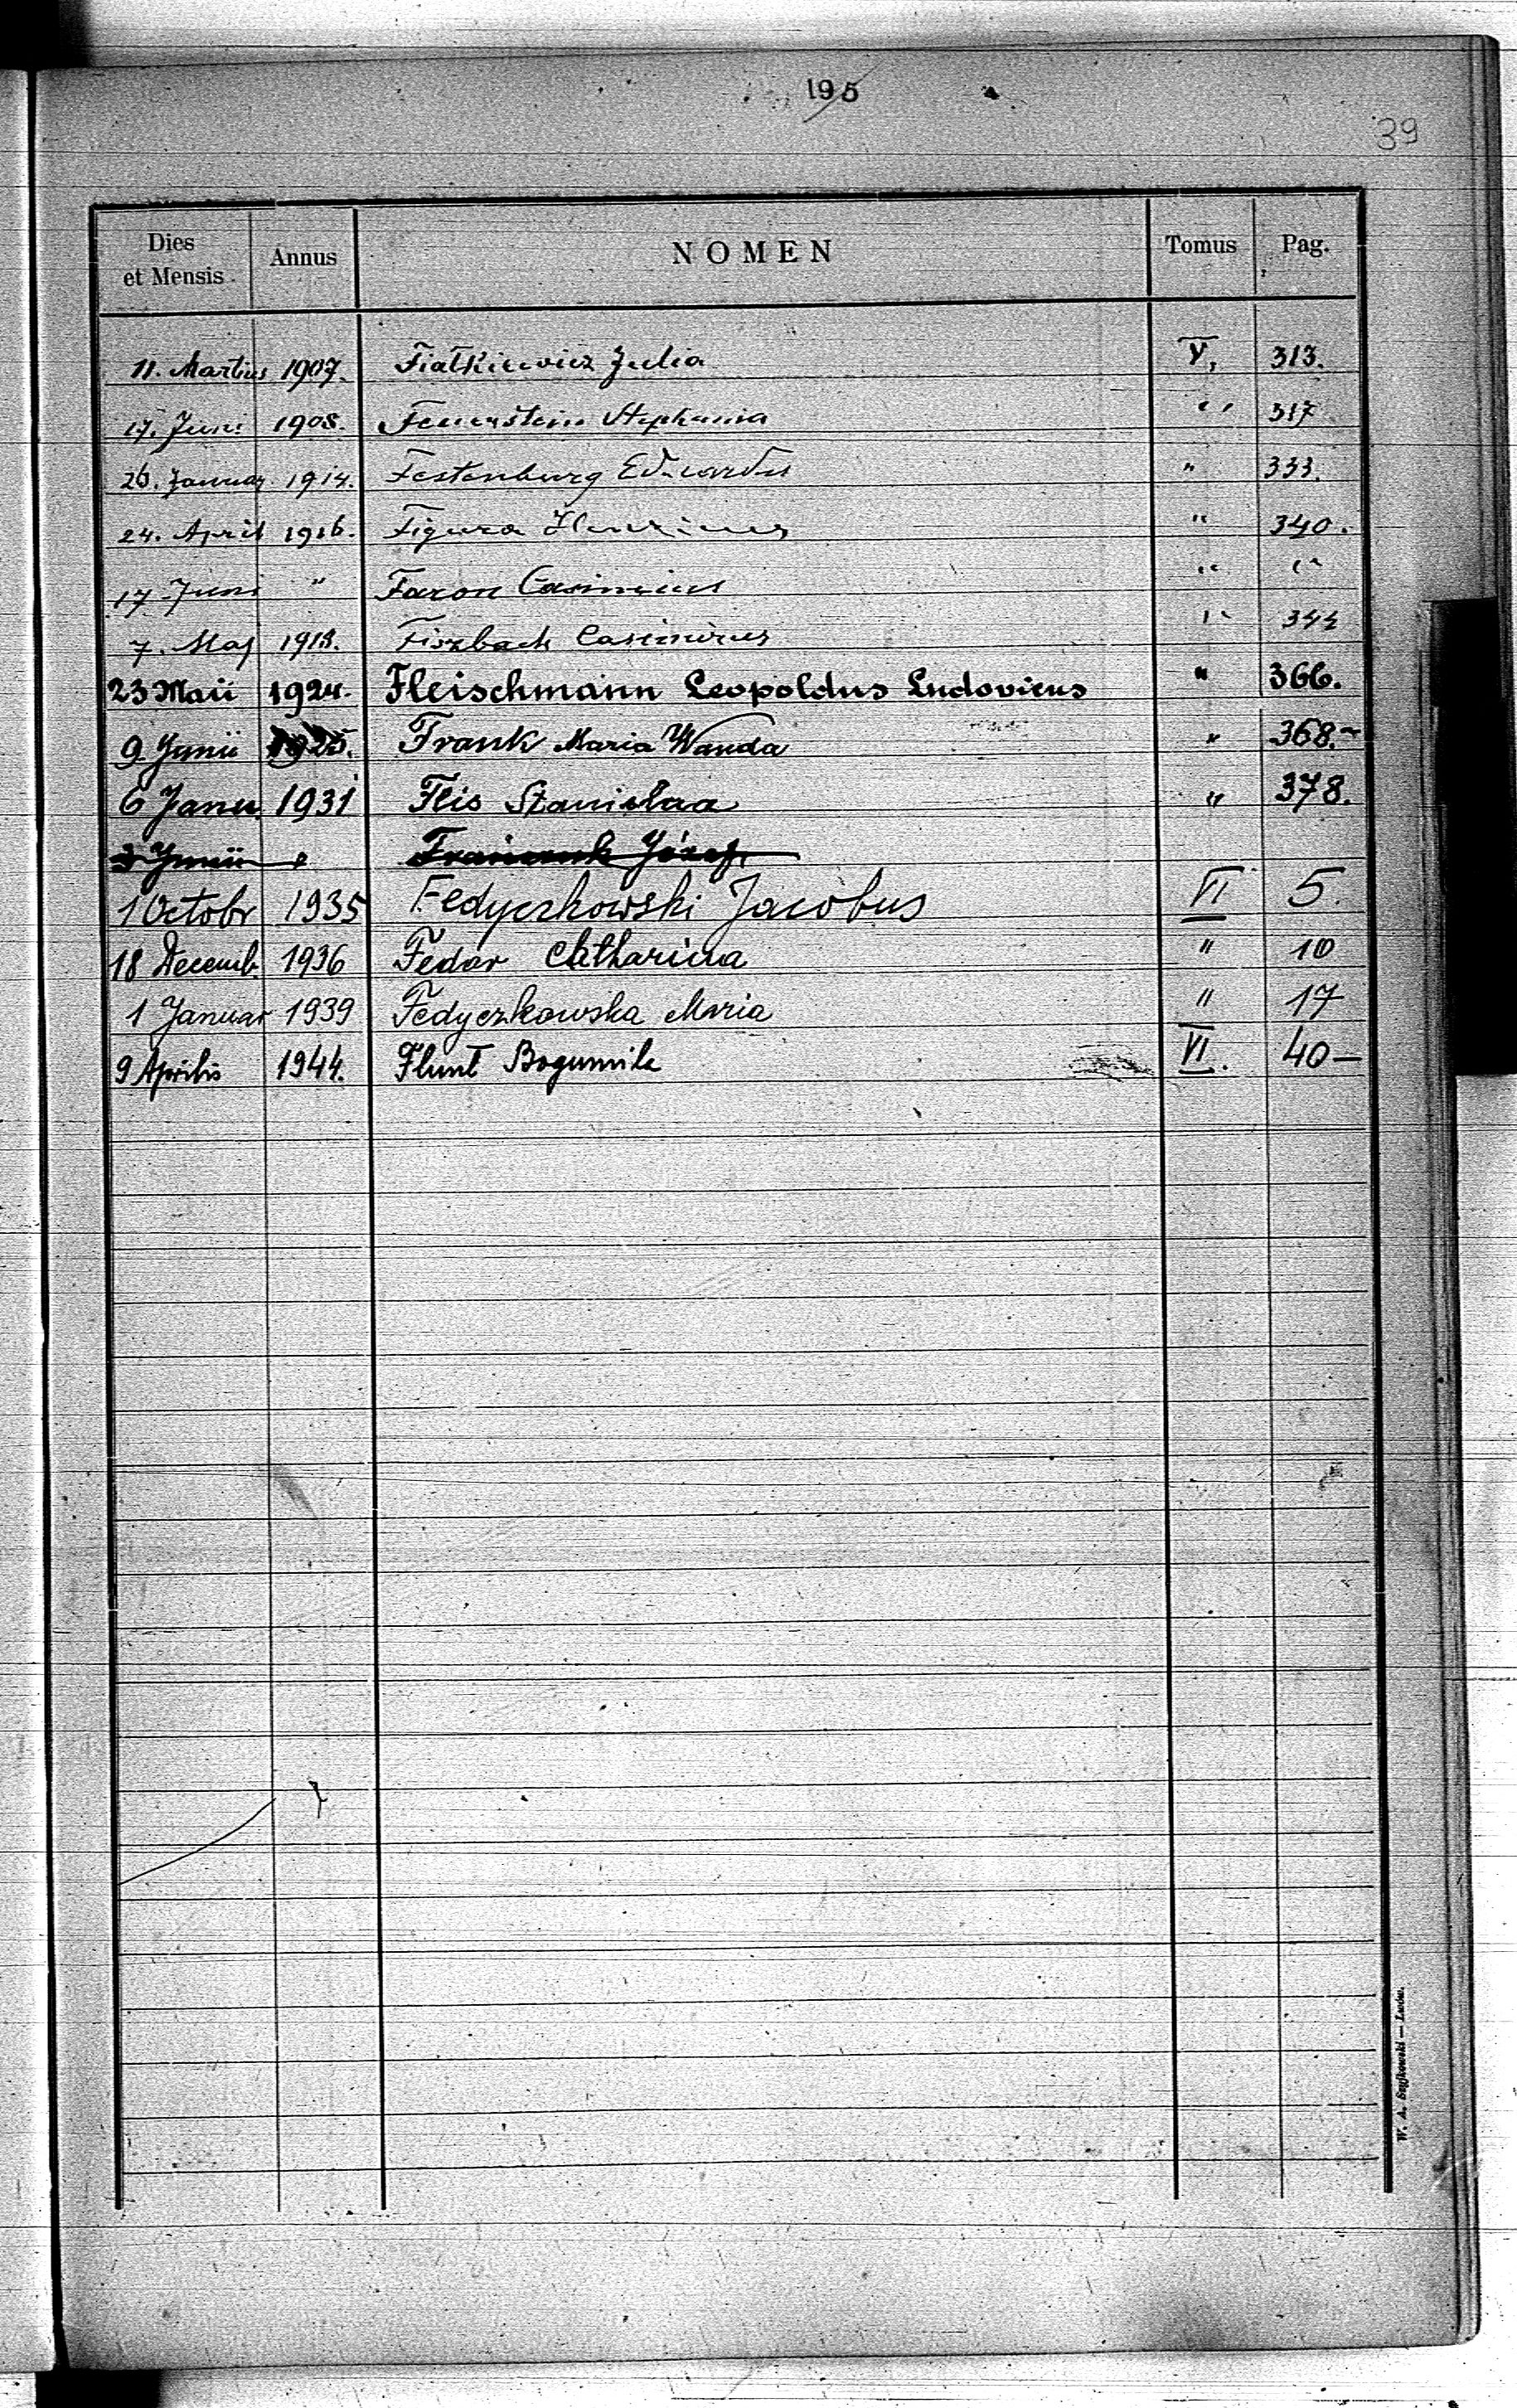 195
39
Dies et Mensis Annus NOMEN Tomus Pag.
11. Martius 1907. Fiałkiewicz Julia V, 313.
17. Juni 1908. Feuerstein Stephania " 317
26. Januar 1914. Festenburg Eduardus " 333.
24. April 1916. Figura Henricus " 340.
17 Juni " Faron Casimirus " "
7. Maj 1918. Fiszbach Casimirus " 344
23 Maii 1924. Fleischmann Leopoldus Ludovicus " 366.
9 Junii 1925. Frank Maria Wanda " 368.-
6 Janu. 1931 Flis Stanisław " 378.
3 Junii " Józef
1 Octobr 1935 Fedyczkowski Jacobus VI 5.
18 Decemb. 1936 Fedor Catharina " 10
1 Januar 1939 Fedyczkowska Maria " 17
9 Aprilis 1944. Flunt Bogumiła VI. 40-
W. A. Szyjkowski — Lwów.